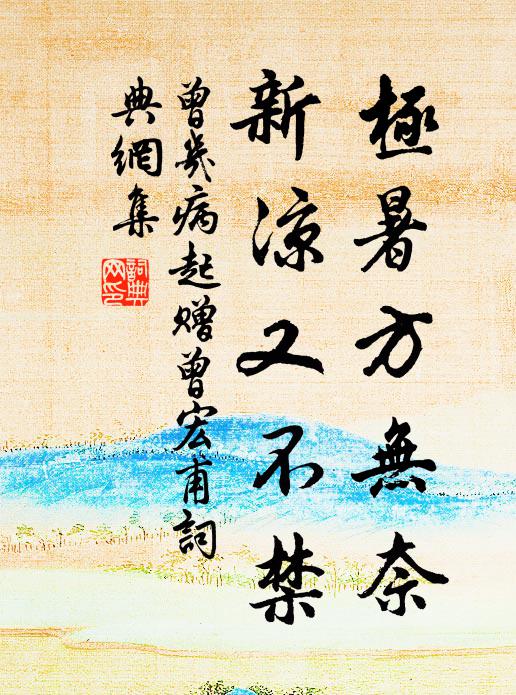 極暑方無奈
新涼又不禁
曾幾病起贈曾宏甫詞
典網集
詞典網印